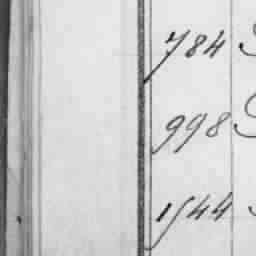 784
998
1544